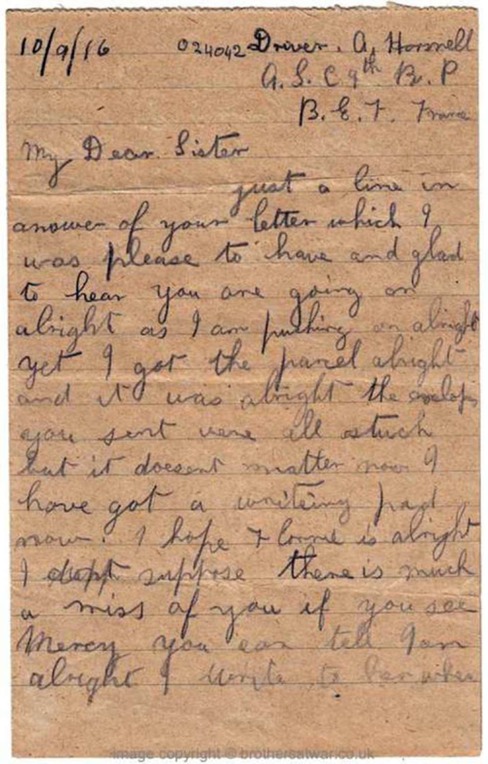 10/9/16 024042 Driver. A. Horsnell
A. S. C 9th B. P
B. E. F. France
My Dear Sister
just a line in
answer of your letter which I
was please to have and glad
to hear you are going on
alright as I am pushing on alright
yet I got the parcel alright
and it was alright the envelops
you sent were all stuck
but it doesent matter now I
have got a writeing pad
now. I hope is alright
I dont suppose there is much
a miss of you if you see
Mercy you can tell I am
alright I write to her when
image copyright © brothersatwar.co.uk